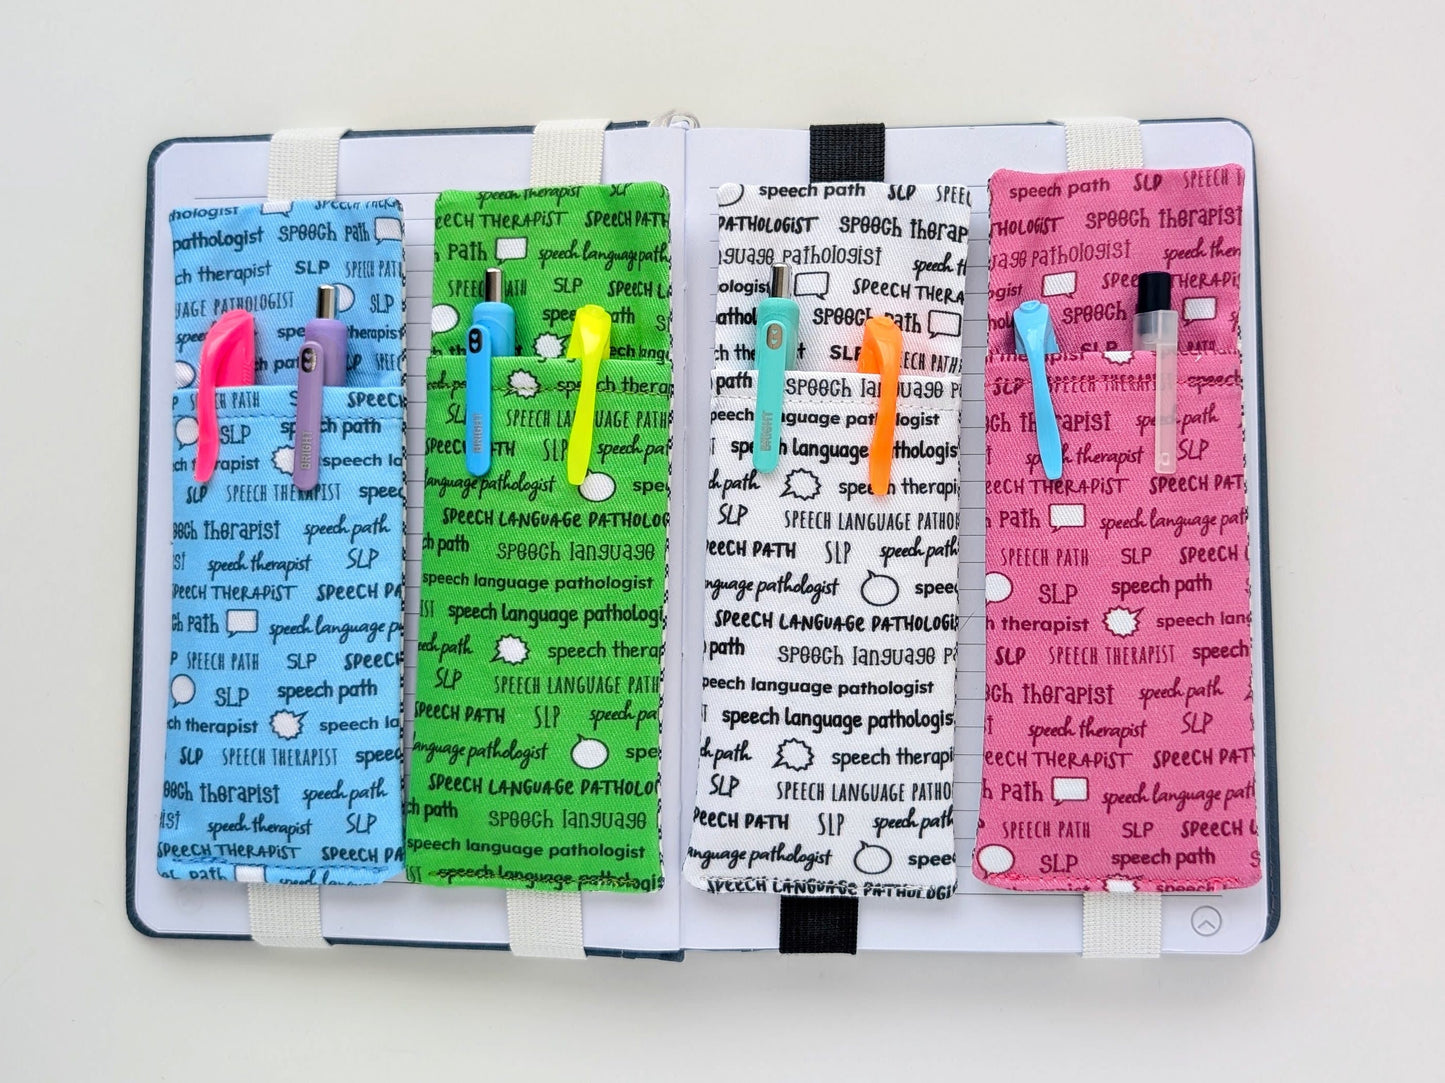 hologist SPEECH THERA
pathologist speech path
ch therapist SLP SPEECH PATH
UAGE PATHOLOGIST SLP
speech therapis
SPEECH PATH SPEECH
SLP speech path
therapist speech la
SLP SPEECH THERAPIST speec
eech therapist speech path
ist speech therapist SLP
SPEECH THERAPIST SPEECH PA
ch path speech language p
P SPEECH PATH SLP SPEECH
SLP speech path
ch therapist speech la
SLP SPEECH THERAPIST speec
eech therapist speech path
ist speech therapist SLP
SPEECH THERAPIST SPEECH PA
BRIGHT
speech therapist SLP
SPEECH THERAPIST SPEECH PATH
Path speech language path
SLP SPEECH L
speech therap
SLP SPEECH LANGUAGE PATH
SLP speech pa
language pathologist spe
SPEECH LANGUAGE PATHOLOG
ch path speech language
speech language pathologist
IST speech language pathologi
eech path speech therap
SLP SPEECH LANGUAGE PATH
SPEECH PATH SLP speech pa
language pathologist spe
SPEECH LANGUAGE PATHOLO
ch path speech language
speech language pathologist
speech language pathologist
BRIGHT
speech path SLP SPEE
PATHOLOGIST speech therap
guage pathologist speech th
ologist SPEECH THERA
pathol speech path
ch the SLP SPEECH PATH
path speech language p
speech language pathologist
speech language pathologis
ch path speech therapi
SLP SPEECH LANGUAGE PATHO
PEECH PATH SLP speech path
nguage pathologist speec
SPEECH LANGUAGE PATHOLOGI
path speech language pa
speech language pathologist
T speech language pathologis
ch path speech therapist
SLP SPEECH LANGUAGE PATHO
PEECH PATH SLP speech path
anguage pathologist speec
SPEECH LANGUAGE PATHOLOGI
BRIGHT
speech path SLP SPEECH T
HOLOGIST speech therapist
uage pathologist speech
ogist SPEECH THERA
speech
SLP SPEECH THERAPIST speec
eech therapist speech path
speech therapist SLP
EECH THERAPIST SPEECH PAT
h path speech language pat
SPEECH PATH SLP SPEECH L
SLP speech path
h therapist speech lan
SLP SPEECH THERAPIST speech
ech therapist speech path
speech therapist SLP
EECH THERAPIST SPEECH PAT
h path speech language pat
SPEECH PATH SLP SPEECH L
SLP speech path